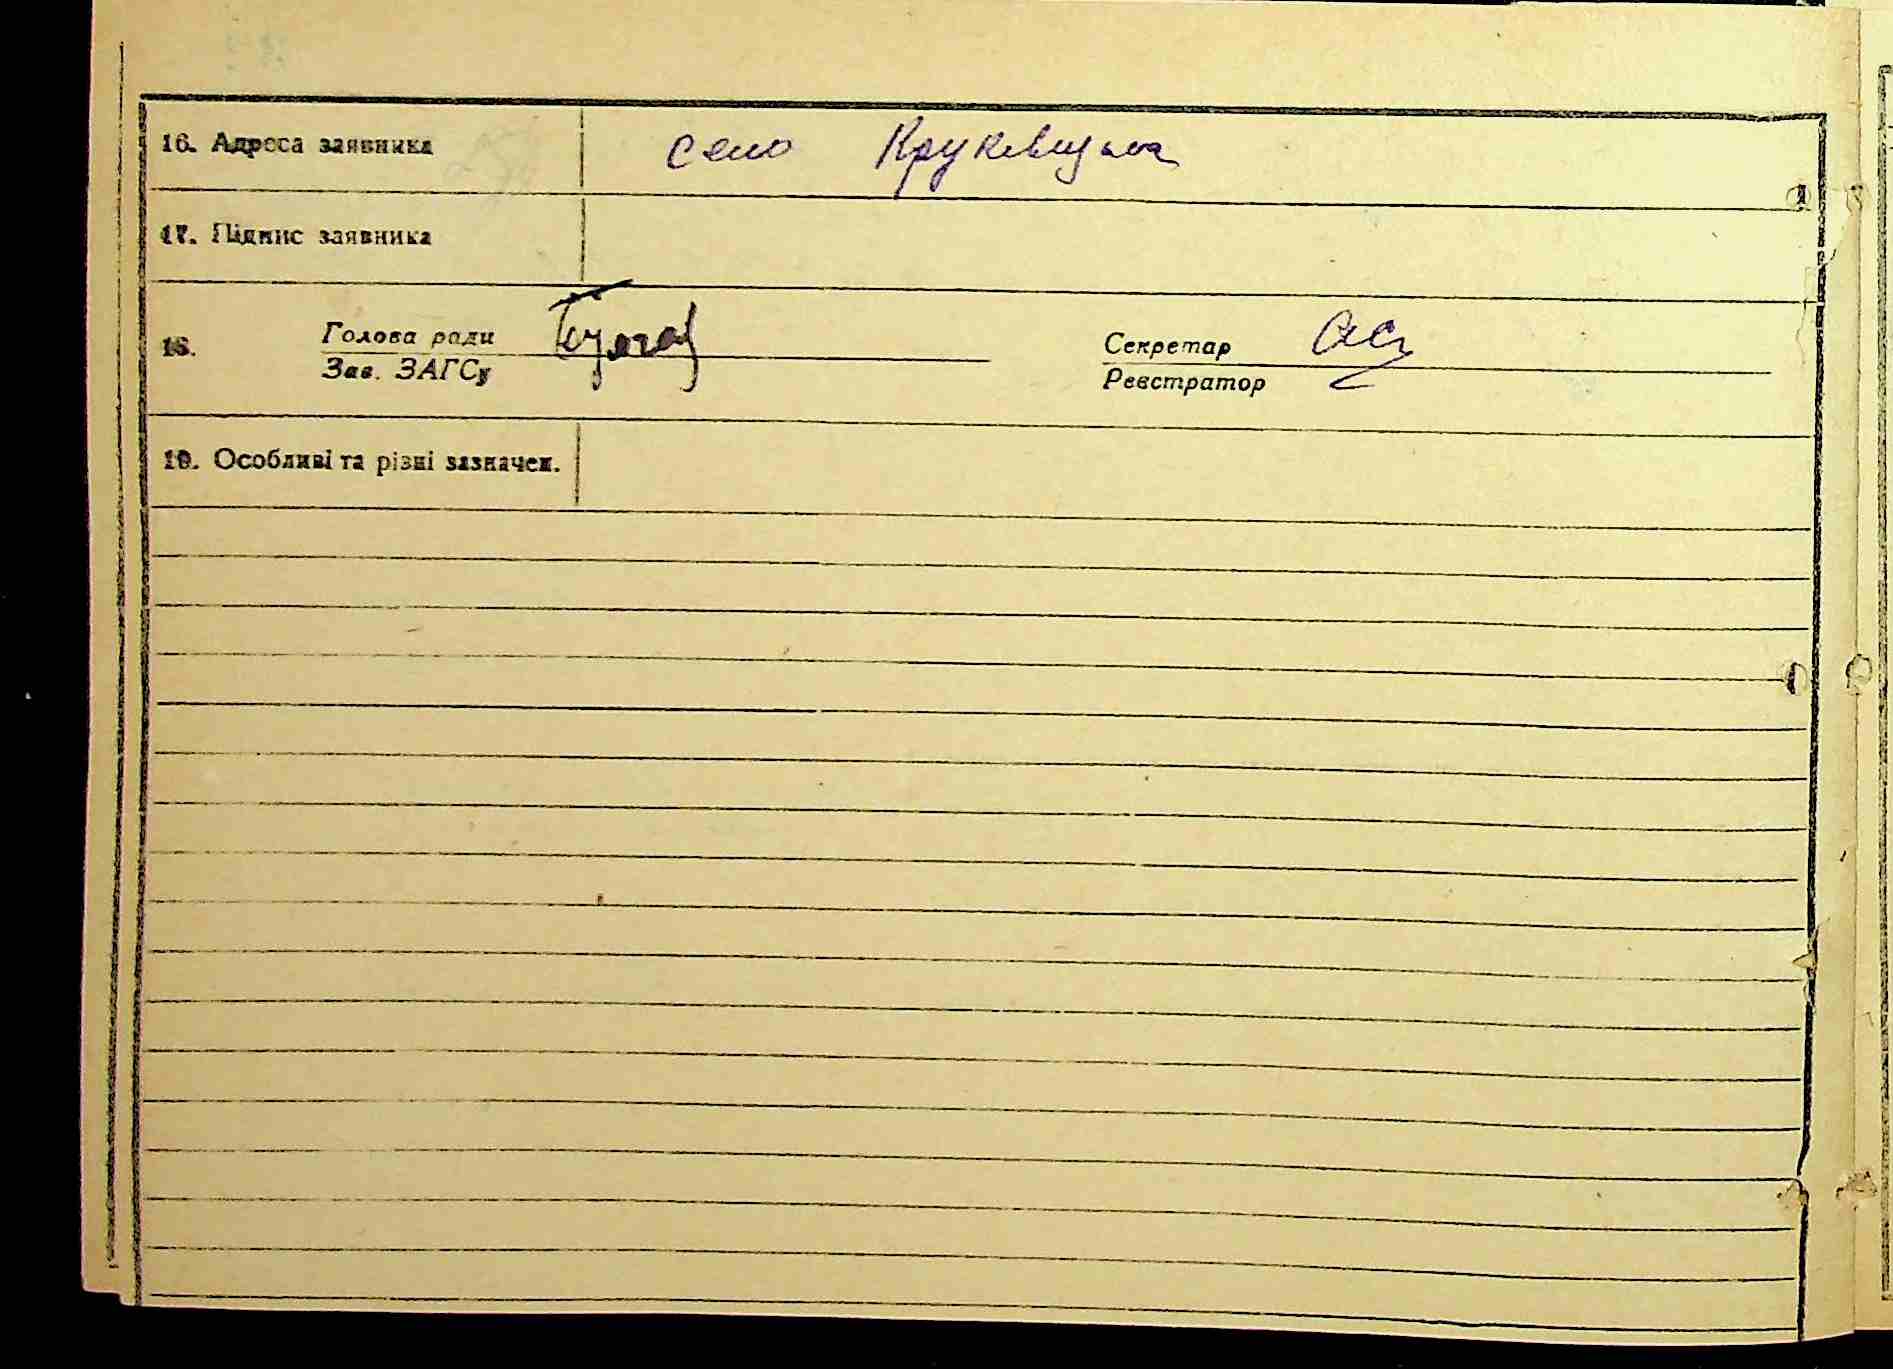 16. Адреса заявника село Крукевщина
17. Підпис заявника
18. Голова ради Секретар
Зав. ЗАГСу Реєстратор
19. Особливі та різні зазначен.